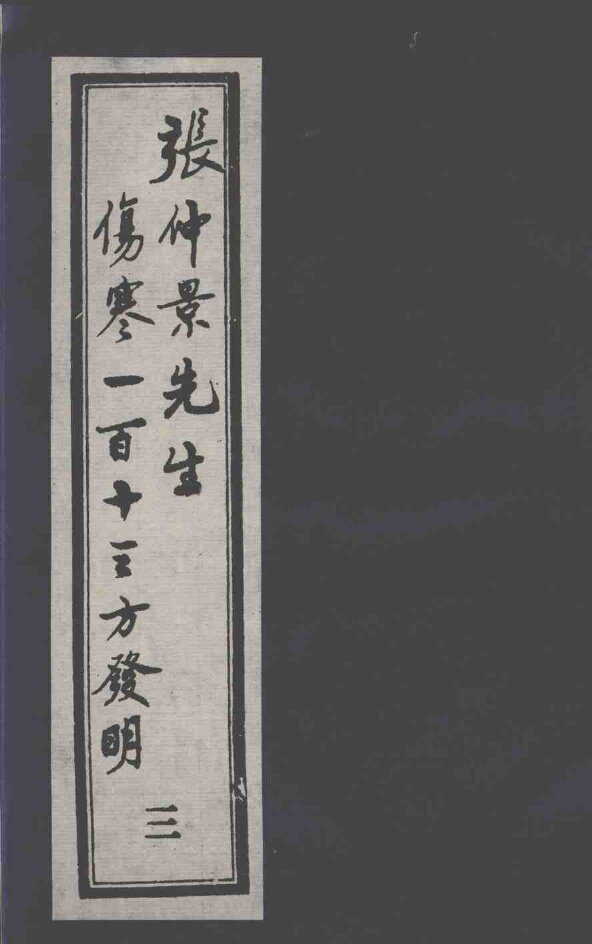 張仲景先生
傷寒一百十三方發明
三